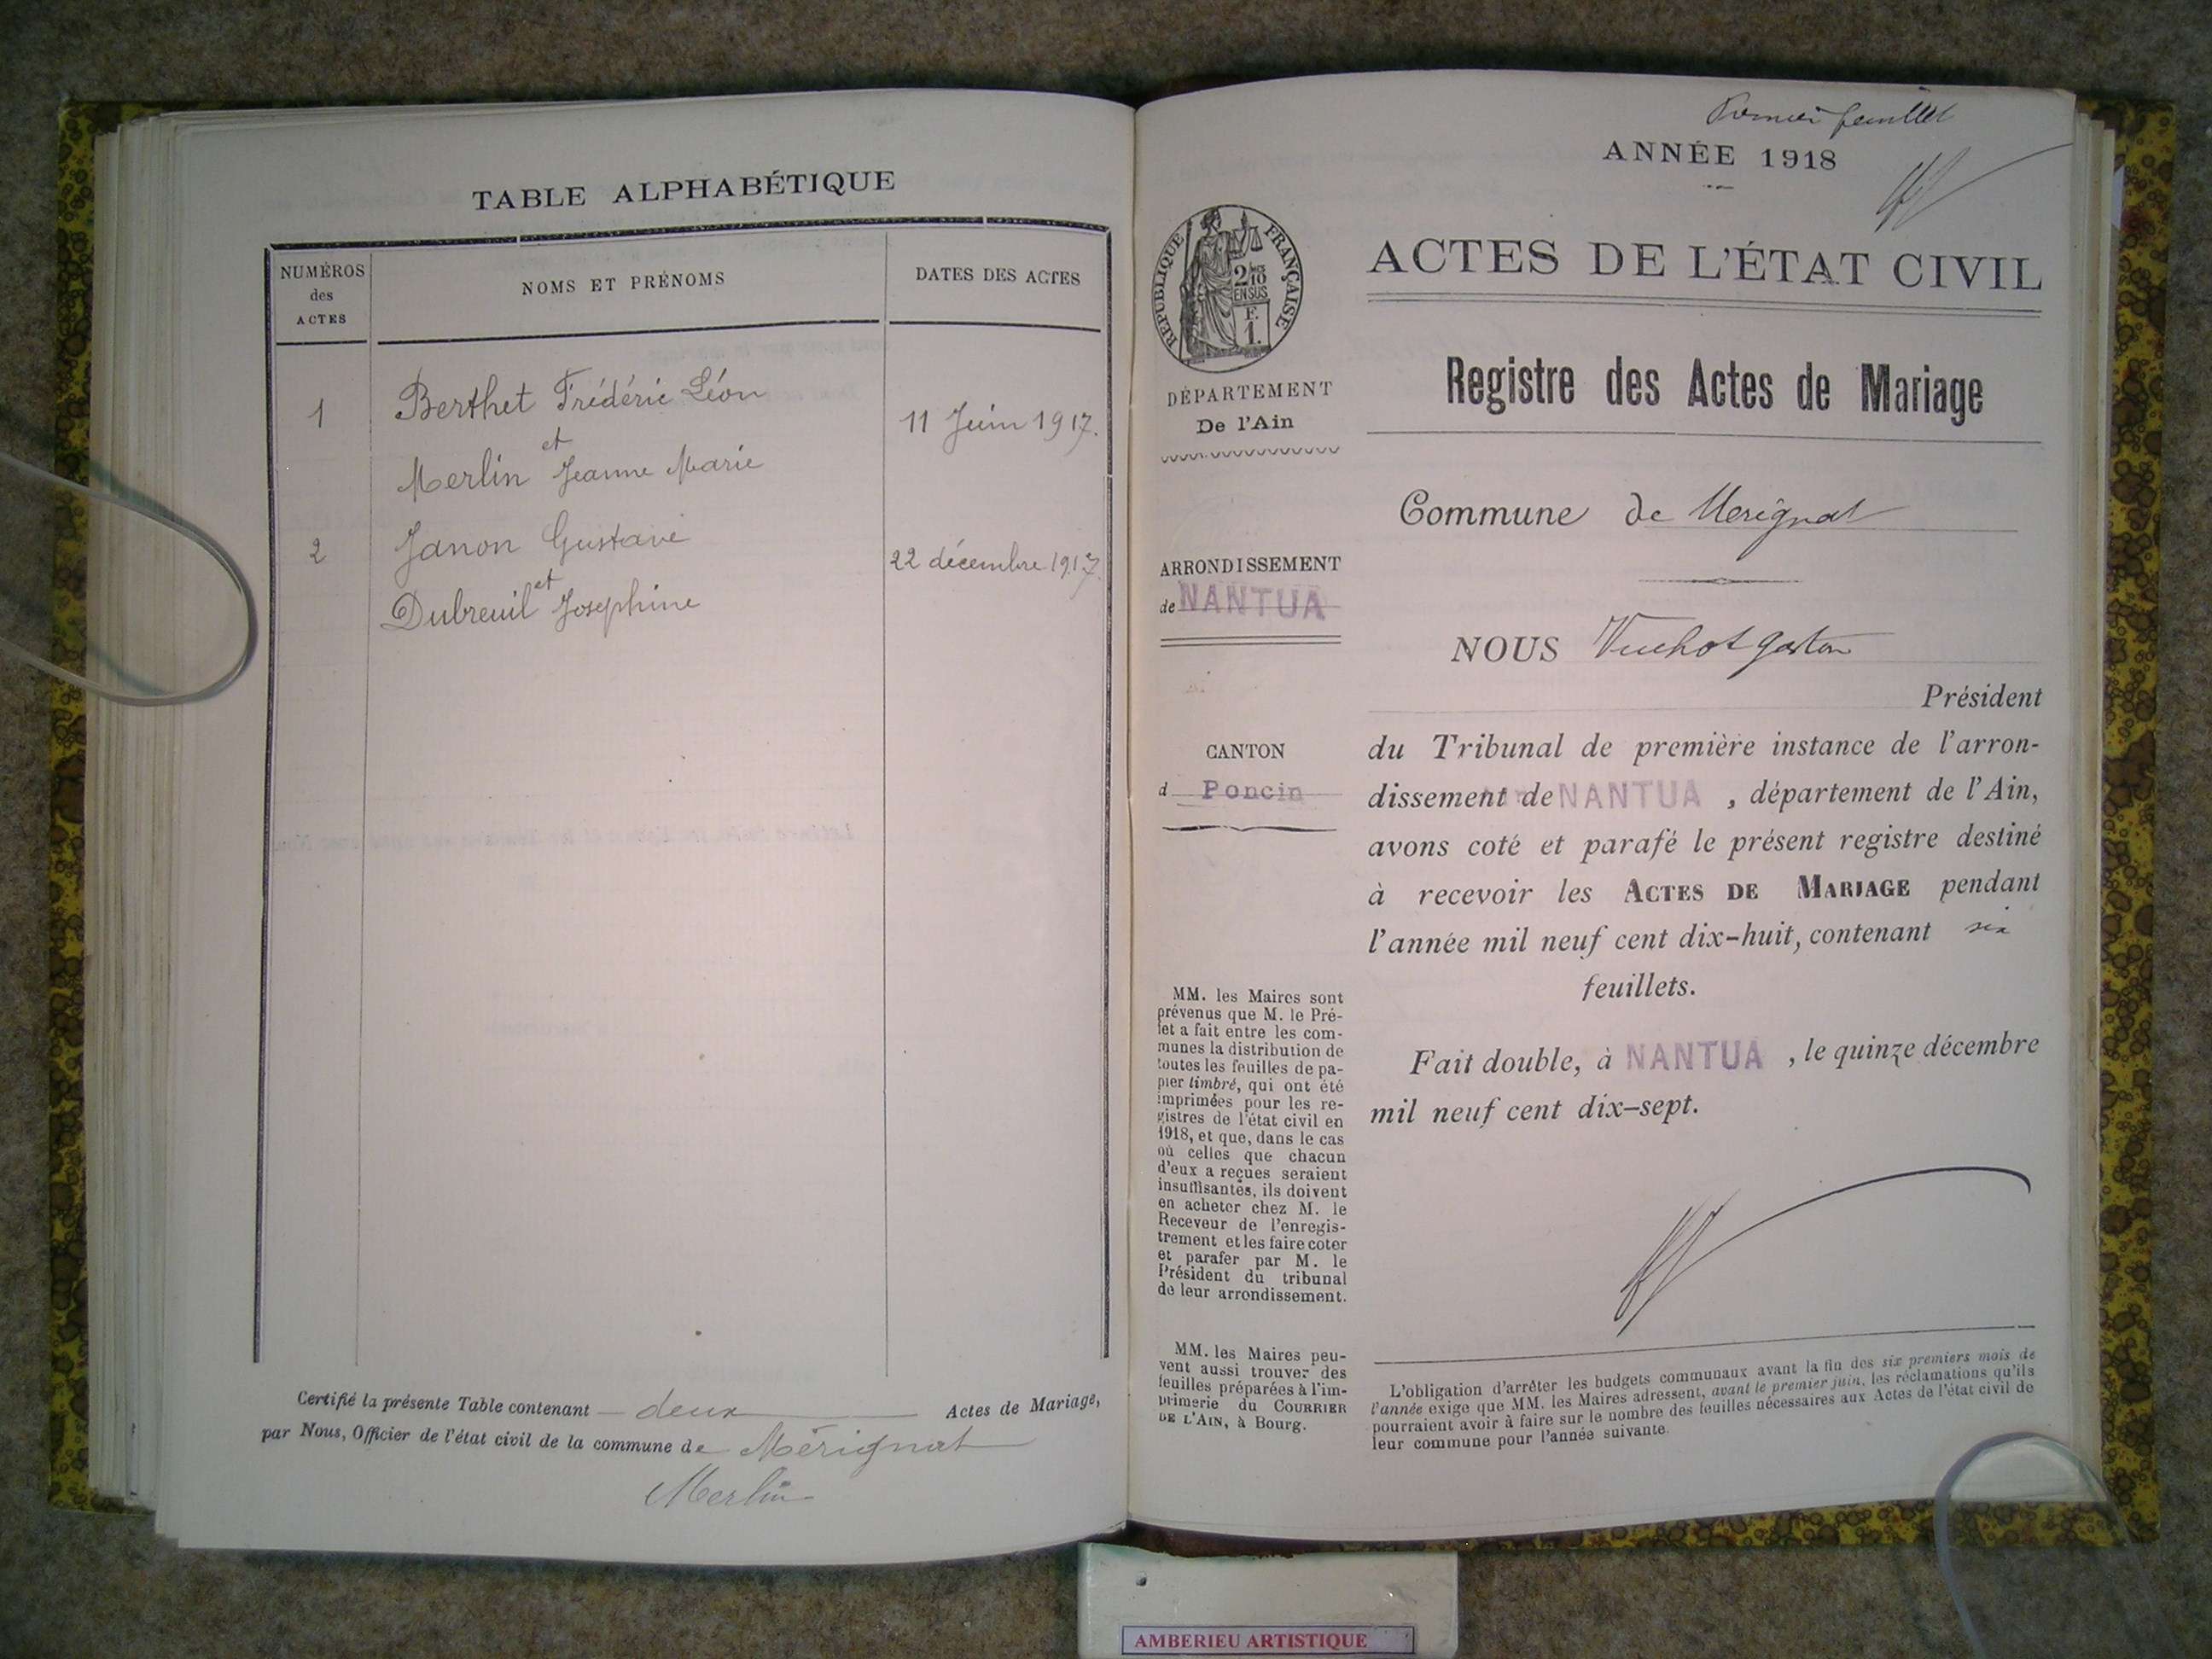 TABLE ALPHABÉTIQUE
NUMÉROS
des
ACTES
NOMS ET PRÉNOMS
DATES DES ACTES
1
Berthet Frédéric Léon
et
Merlin Jeanne Marie
11 Juin 1917.
2
Janon Gustave
et
Dubreuil Joséphine
22 décembre 1917.
Certifié la présente Table contenant deux Actes de Mariage,
par Nous, Officier de l'état civil de la commune de Mérignat
Merlin
Premier feuillet
ANNÉE 1918
RÉPUBLIQUE FRANÇAISE
2/10
EN SUS
F.
1.
DÉPARTEMENT
De l'Ain
ARRONDISSEMENT
de NANTUA
CANTON
d Poncin
MM. les Maires sont
prévenus que M. le Pré-
fet a fait entre les com-
munes la distribution de
toutes les feuilles de pa-
pier timbré, qui ont été
imprimées pour les re-
gistres de l'état civil en
1918, et que, dans le cas
où celles que chacun
d'eux a reçues seraient
insuffisantes, ils doivent
en acheter chez M. le
Receveur de l'enregis-
trement et les faire coter
et parafer par M. le
Président du tribunal
de leur arrondissement.
MM. les Maires peu-
vent aussi trouver des
feuilles préparées à l'im-
primerie du COURRIER
DE L'AIN, à Bourg.
ACTES DE L'ÉTAT CIVIL
Registre des Actes de Mariage
Commune de Mérignat
NOUS Vuchot Gaston
Président
du Tribunal de première instance de l'arron-
dissement de NANTUA, département de l'Ain,
avons coté et parafé le présent registre destiné
à recevoir les ACTES DE MARIAGE pendant
l'année mil neuf cent dix-huit, contenant six
feuillets.
Fait double, à NANTUA, le quinze décembre
mil neuf cent dix-sept.
L'obligation d'arrêter les budgets communaux avant la fin des six premiers mois de
l'année exige que MM. les Maires adressent, avant le premier juin, les réclamations qu'ils
pourraient avoir à faire sur le nombre des feuilles nécessaires aux Actes de l'état civil de
leur commune pour l'année suivante.
AMBERIEU ARTISTIQUE